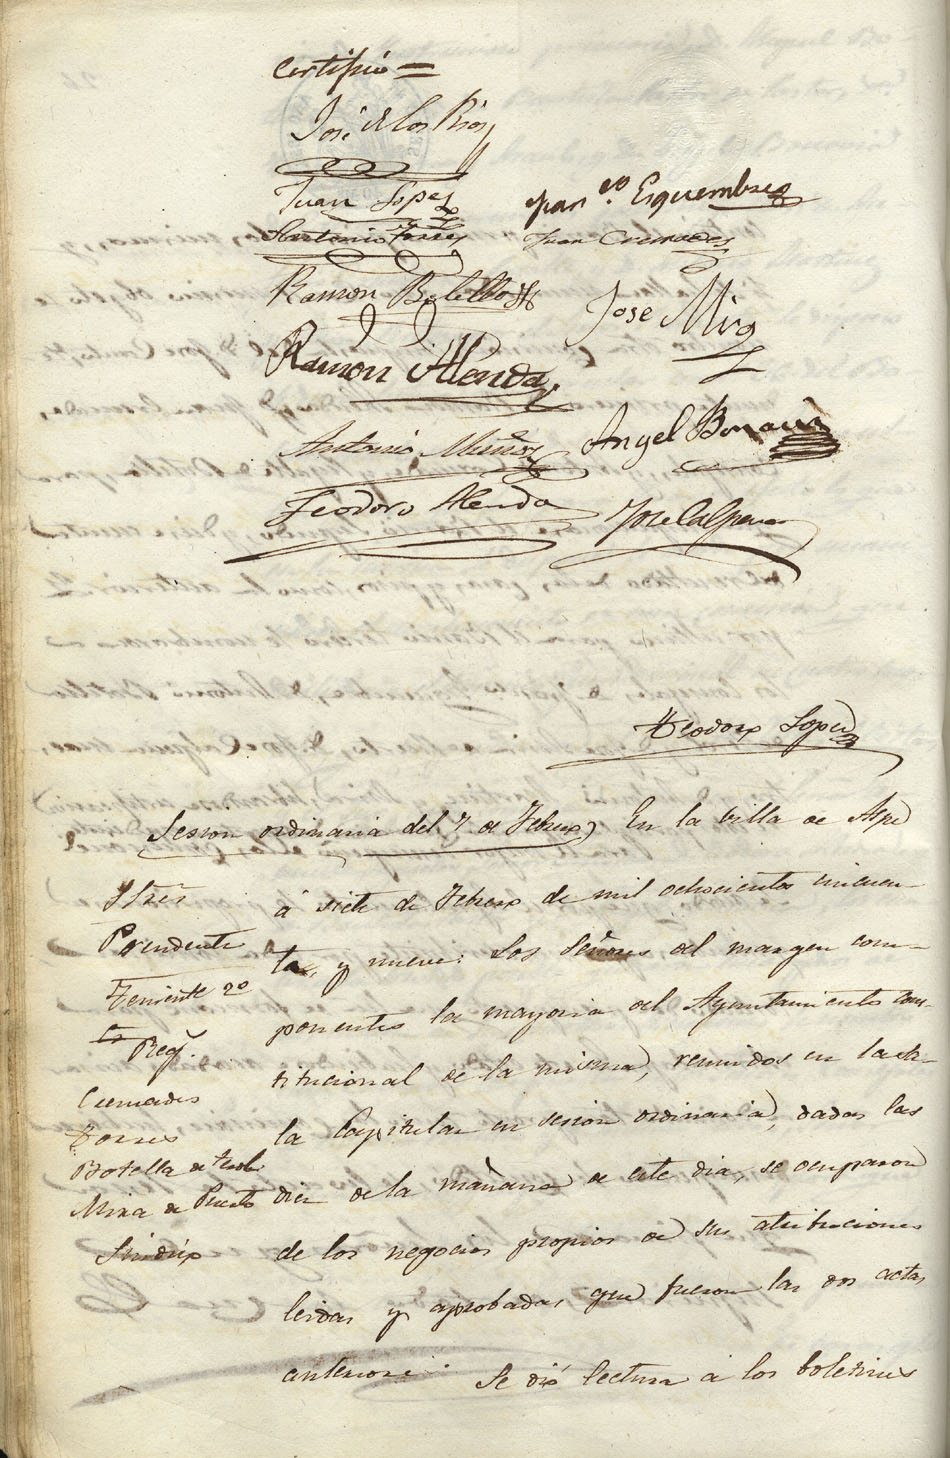 Certifico =
José de los Rios
Juan Lopez
Franco. Esquembre
Antonio Torres
Juan Cremades
Ramon Botella
Jose Mira
Ramon Alenda
Antonio Muñoz
Angel Bonavia
Teodoro Alenda
Jose Calpena
Teodoro Lopez
Sesion ordinaria del 7 de Febrero
En la villa de Aspe
á siete de Febrero de mil ochocientos cincuen-
ta y nueve: Los Señores del margen com-
ponentes la mayoria del Ayuntamiento cons-
titucional de la misma, reunidos en la Sa-
la Capitular en sesion ordinaria, dadas las
diez de la mañana de este dia, se ocuparon
de los negocios propios de sus atribuciones
leidas y aprobadas que fueron las dos actas
anteriores. Se dió lectura á los boletines
Sres.
Presidente
Teniente 2o
Reg.
Cremades
Torres
Botella de
Mira de
Sindico